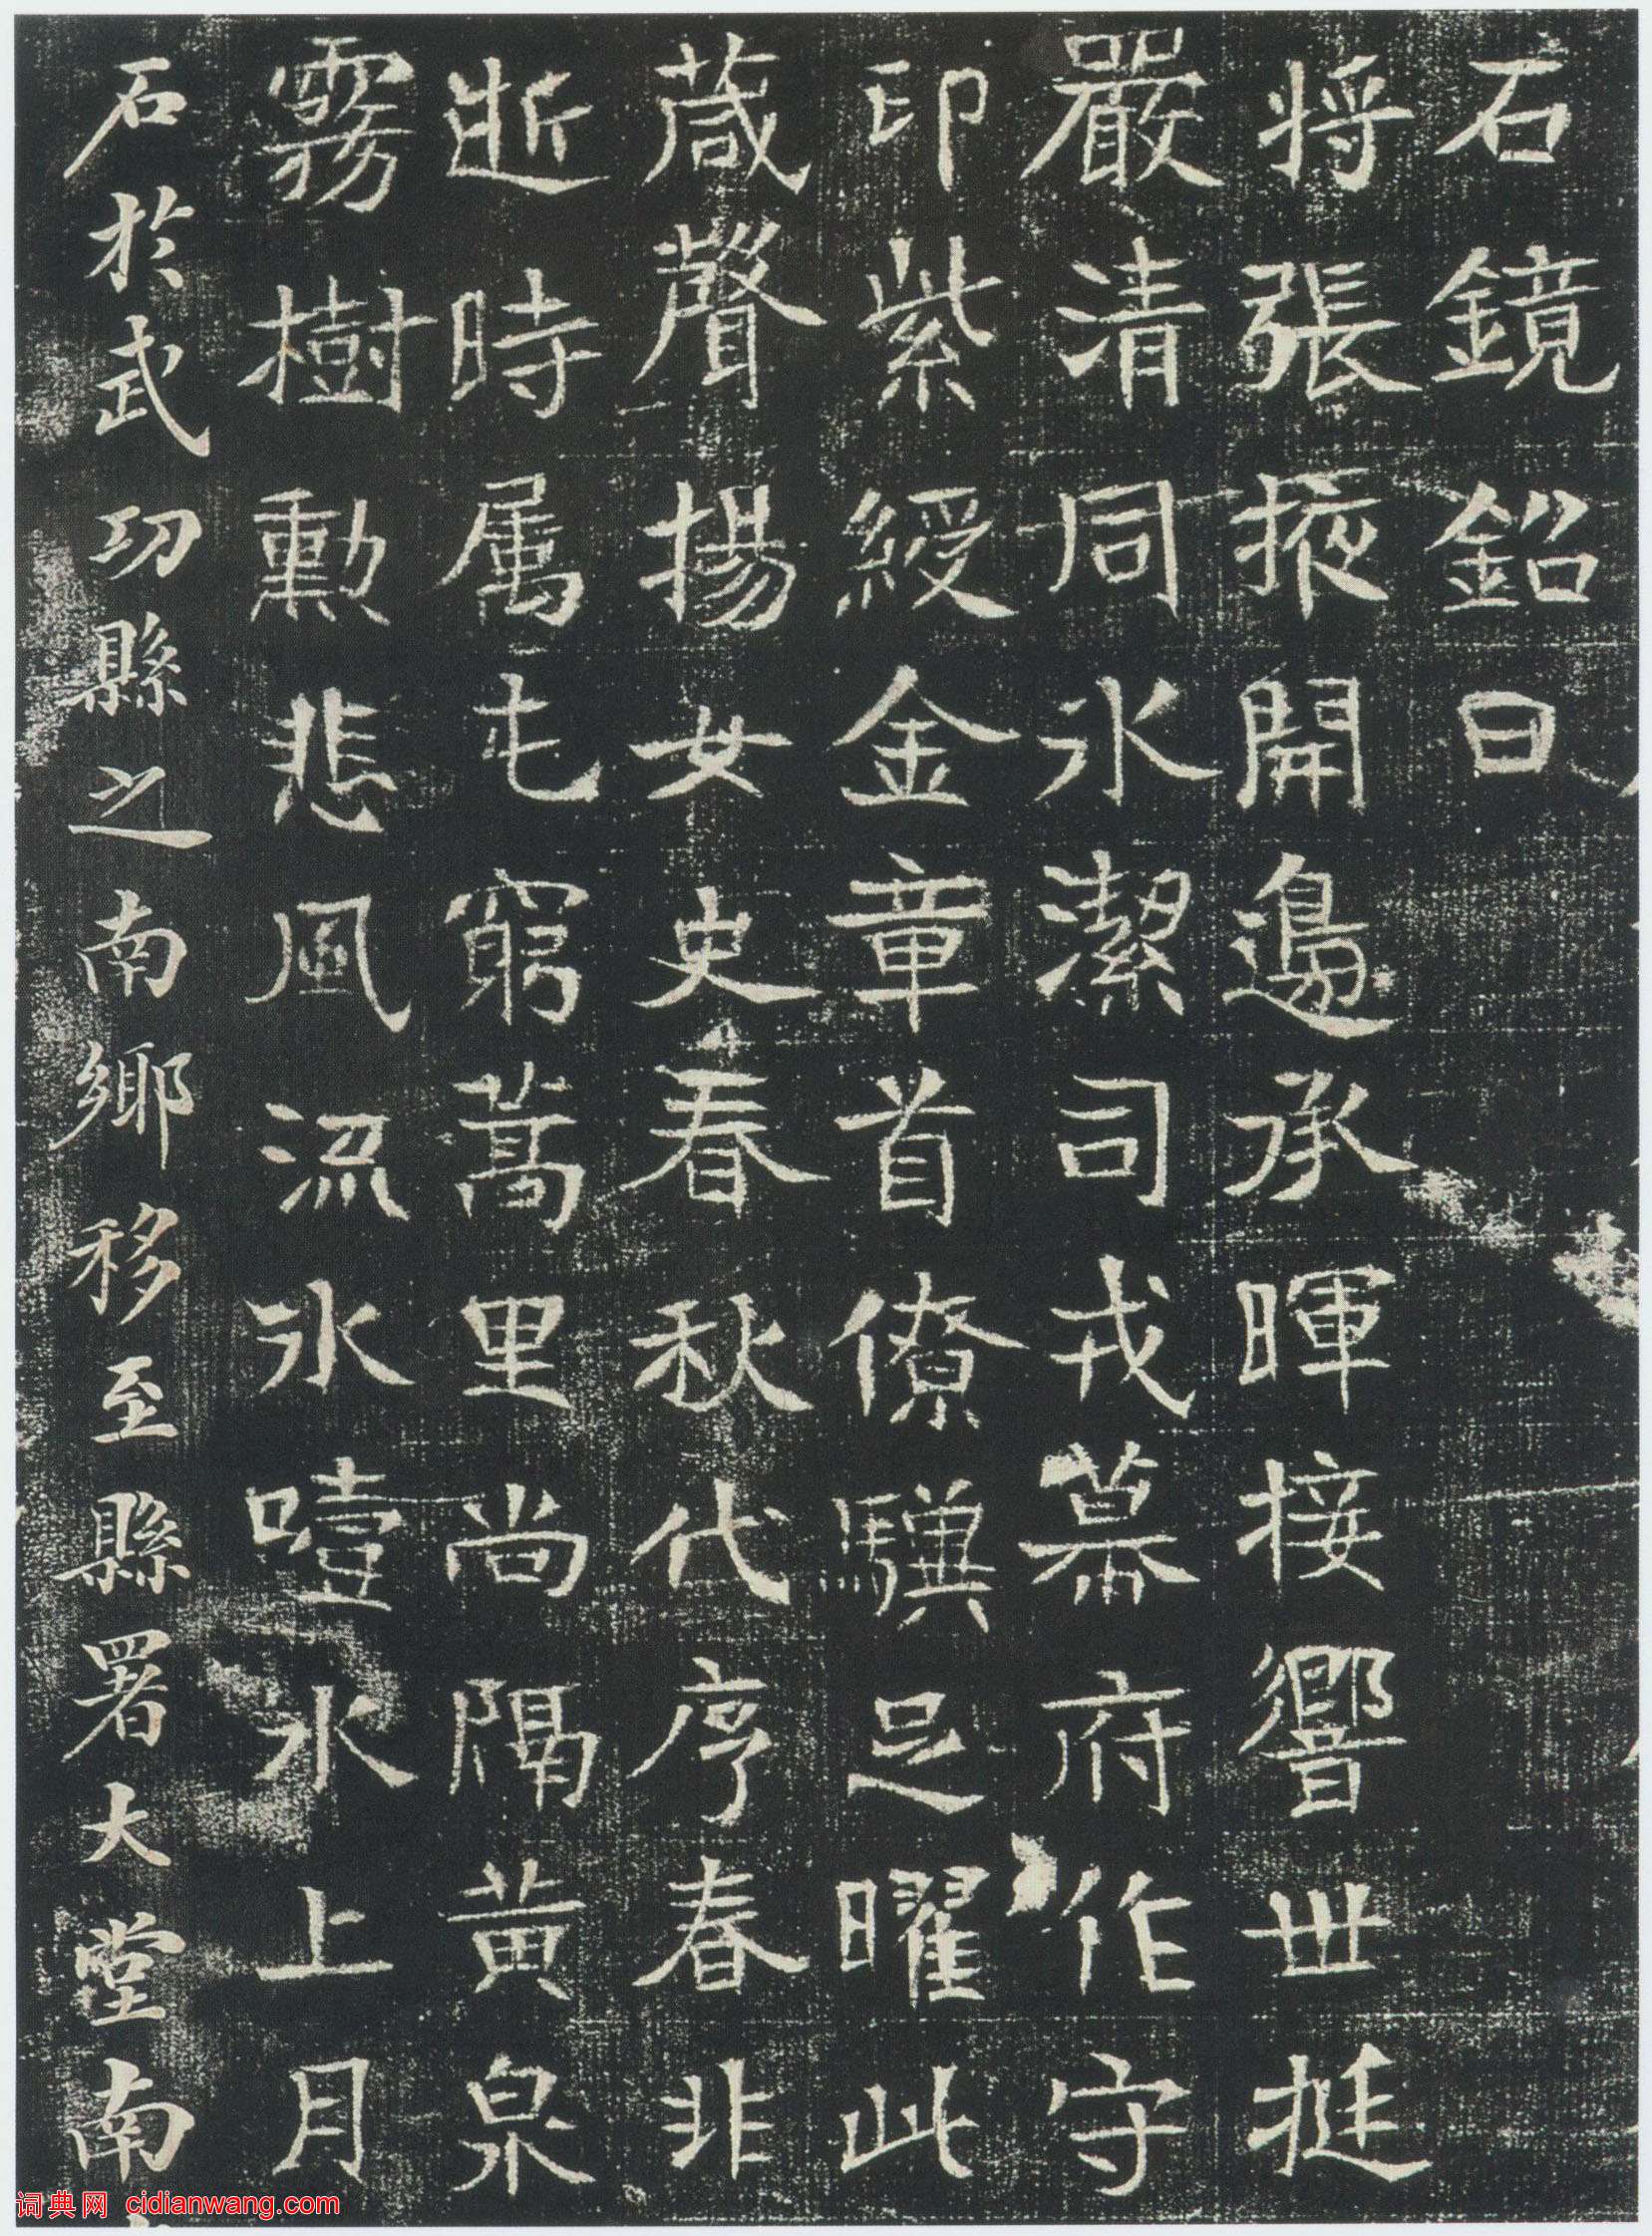 石鏡銘曰
將張掖開邊承暉接響世挺
嚴清同水潔司戎幕府作守
印紫綬金章首僚驥足曜此
葴聲揚女史春秋代序春非
逝時属屯窮蒿里尚隔黃泉
霧樹勳悲風流水噎水上月
石於武功縣之南鄉移至縣署大堂南
词典网 cidianwang.com